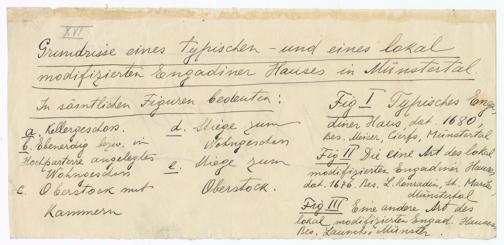 XVI
Grundrisse eines typischen - und eines lokal
modifizierten Engadiner Hauses in Münstertal.
In sämtlichen Figuren bedeuten:
a. Kellergeschoss.
b. Ebenerdig bezw. im
Hochparterre angelegtes
Wohngeschoss
c. Oberstock mit
Kammern
d. Stiege zum
Wohngeschoss
e. Stiege zum
Oberstock.
Fig I Typisches Enga-
diner Haus, dat. 1680.
Bes. Meiser, Cierfs, Münstertal
Fig II Die eine Art des lokal
modifizierten Engadiner Hauses
dat. 1676. Bes. L. Conradin, St. Maria
Münstertal
Fig III Eine andere Art des
lokal modifizierten Engad. Hauses
Bes. Münster.